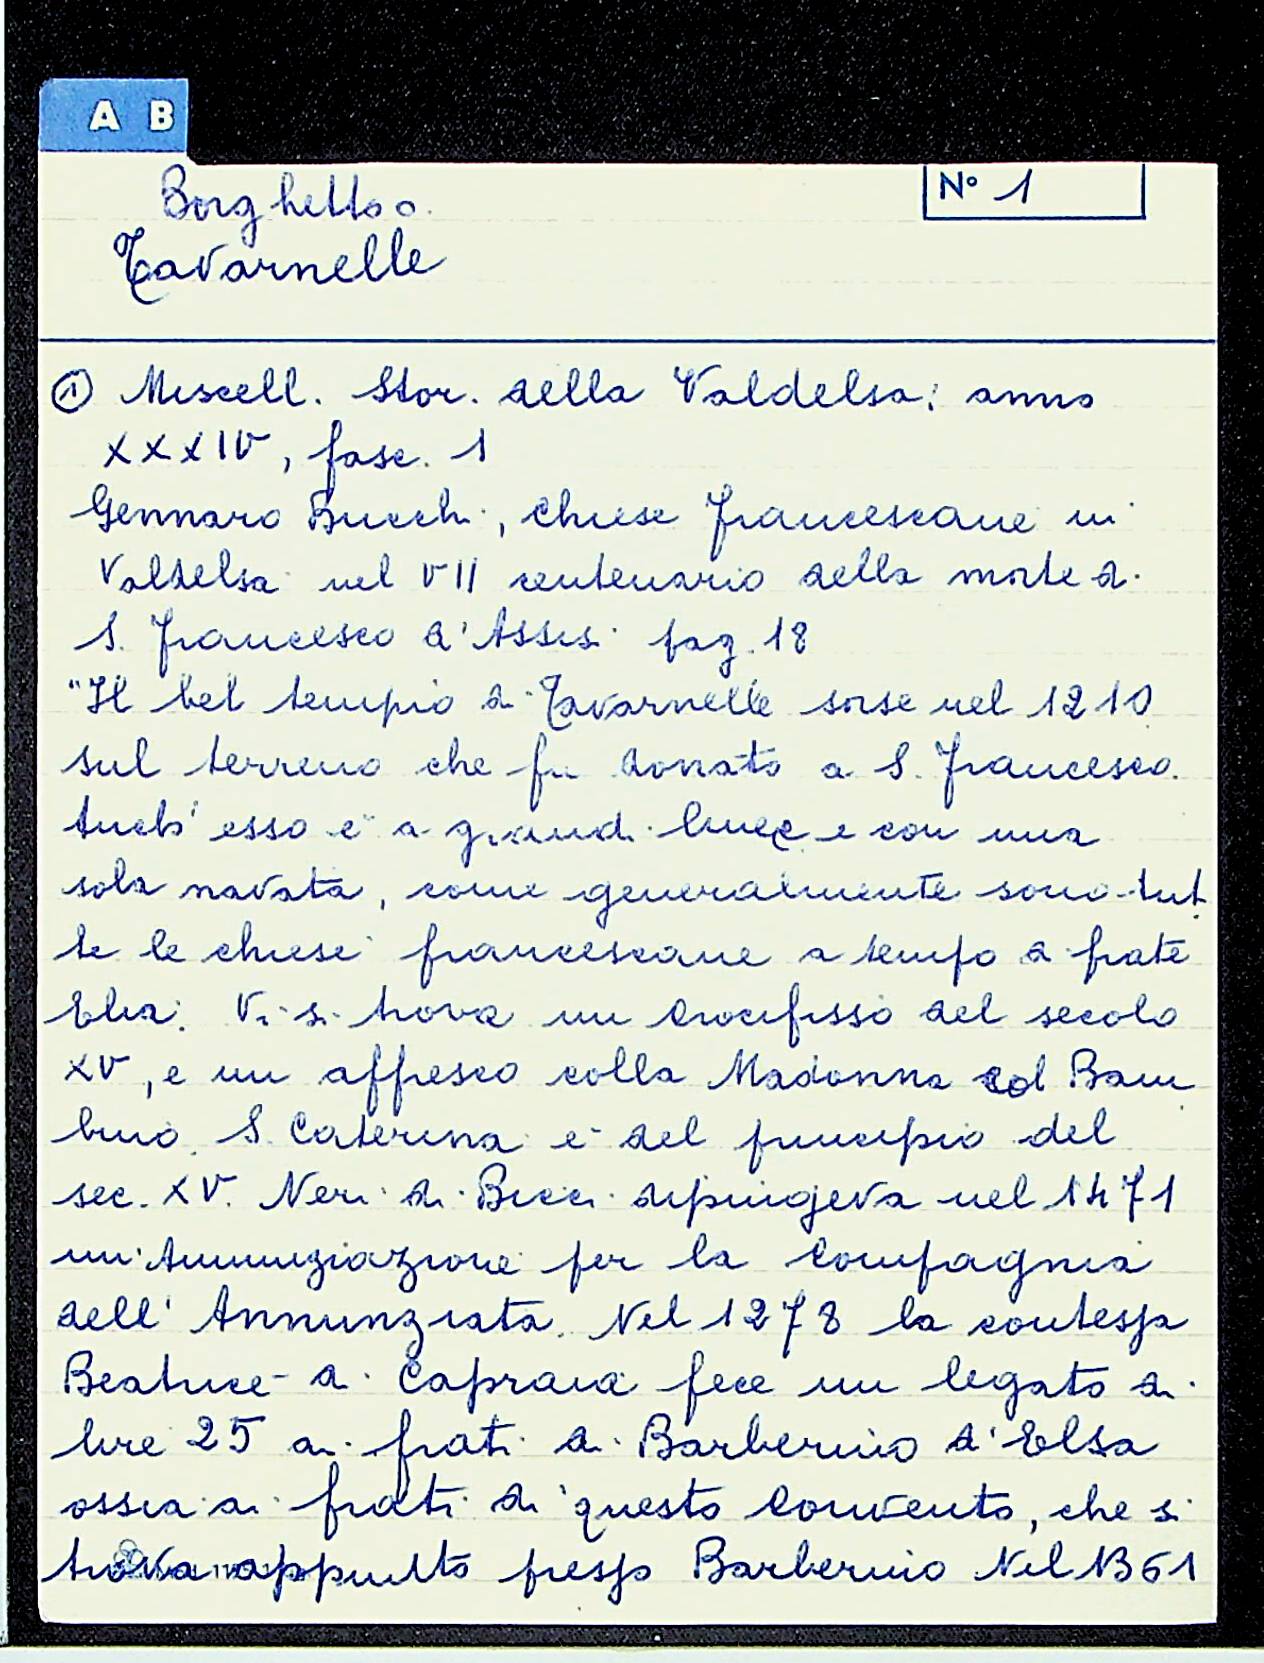 A B
Borghetto o.
Tavarnelle
N° 1
① Miscell. Stor. della Valdelsa: anno
XXXIV, fasc. 1
Gennaro Bucchi, Chiese francescane in
Valdelsa nel VII centenario della morte di
S. Francesco d'Assisi pag. 18
"Il bel tempio di Tavarnelle sorse nel 1210
sul terreno che fu donato a S. Francesco.
Anch'esso è a grandi linee e con una
sola navata, come generalmente sono tut
te le chiese francescane a tempo di frate
Elia. Vi si trova un Crocifisso del secolo
XV, e un affresco colla Madonna col Bam
bino. S. Caterina è del principio del
sec. XV. Neri di Bicci dipingeva nel 1471
un'Annunziazione per la Compagnia
dell'Annunziata. Nel 1278 la contessa
Beatrice di Capraia fece un legato di
lire 25 ai frati di Barberino d'Elsa
ossia ai frati di questo Convento, che si
trova appunto presso Barberino Nel 1361